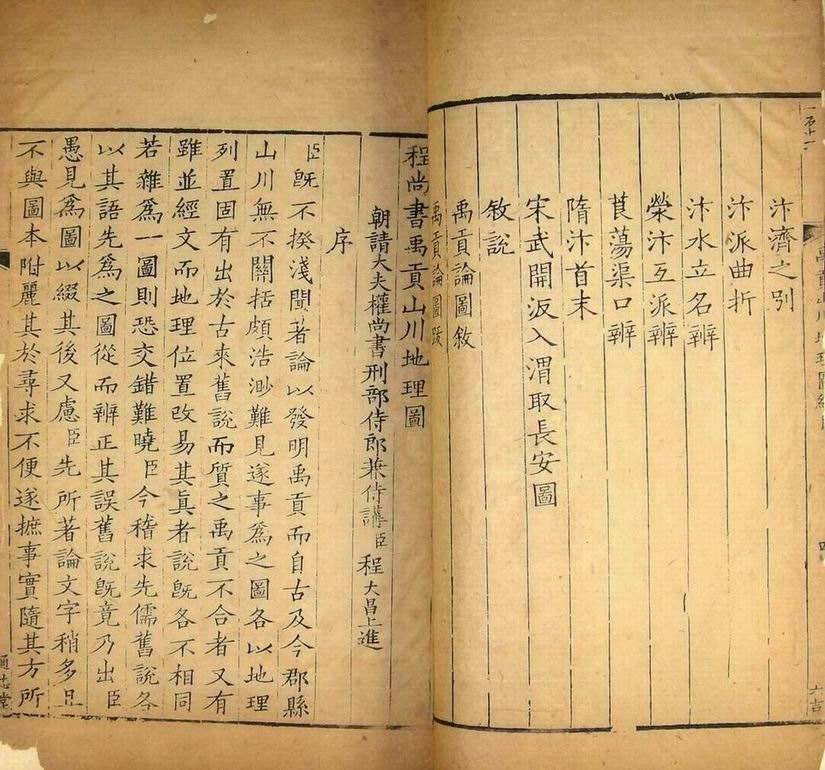 汴濟之別
汴派曲折
汴水立名辨
滎汴互派辨
莨蕩渠口辨
隋汴首末
宋武開汳入渭取長安圖
敘說
禹貢論圖敘
禹貢論圖跋
程尚書禹貢山川地理圖
朝請大夫權尚書刑部侍郎兼侍講臣程大昌上進
序
臣既不揆淺聞著論以發明禹貢而自古及今郡縣
山川無不關括頗浩渺難見遂事爲之圖各以地理
列置固有出於古來舊說而質之禹貢不合者又有
雖並經文而地理位置改易其真者說既各不相同
若雜爲一圖則恐交錯難曉臣今稽求先儒舊說各
以其語先爲之圖從而辨正其誤舊說既竟乃出臣
愚見爲圖以綴其後又慮臣先所著論文字稍多且
不與圖本附麗其於尋求不便遂摭事實隨其方所
通志堂